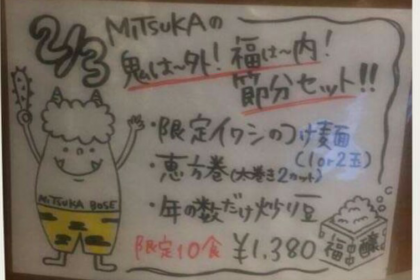 2/3
MiTSUKAの
鬼は〜外！福は〜内！
節分セット!!
・限定イワシのつけ麺
(1or2玉)
・恵方巻(太巻き2カット)
・年の数だけ炒り豆
限定10食 ¥1,380
MiTSUKA BOSE
福